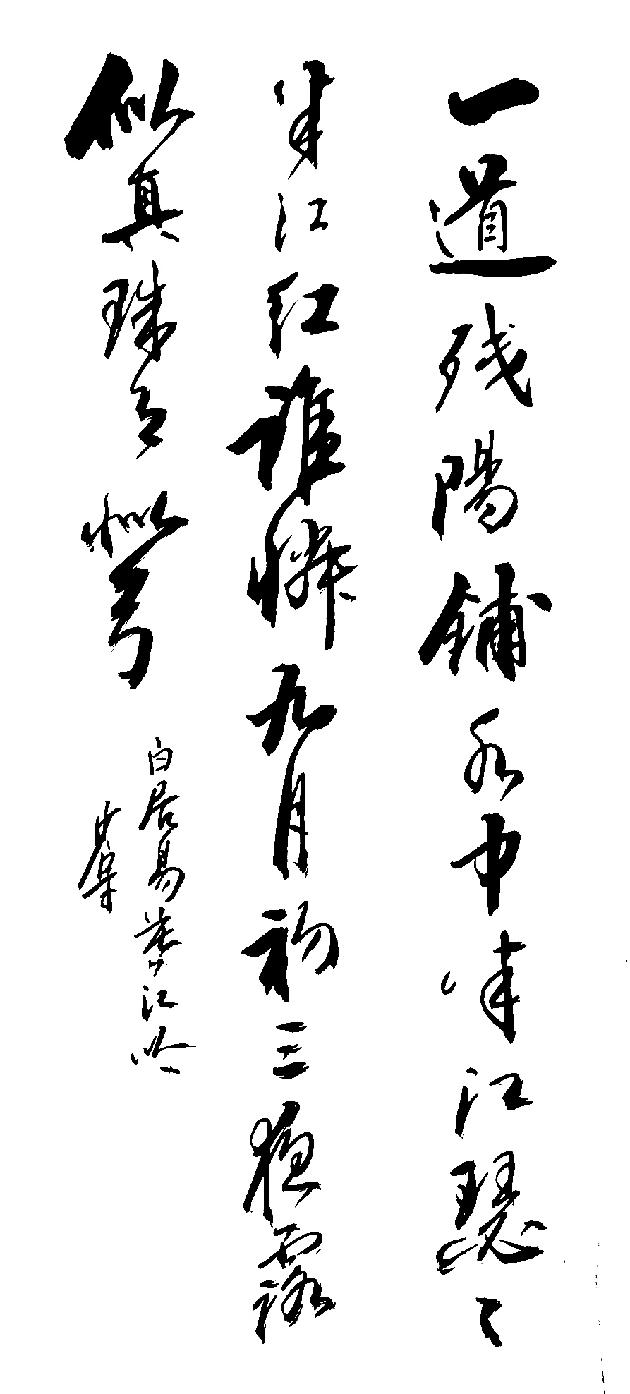 一道残陽鋪水中半江瑟々
半江红誰憐九月初三夜露
似真珠月似弓
白居易暮江吟